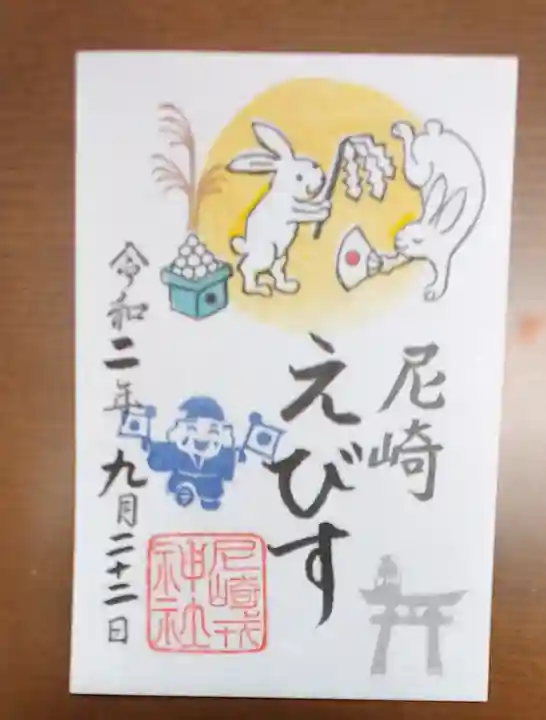 尼崎
えびす
令和二年九月二十二日
尼崎戎
神社